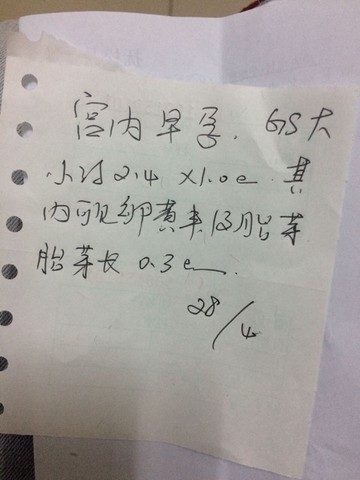 宫内早孕. GS大
小约2.4 x1.0c 其
内可见卵黄囊及胎芽
胎芽长 0.3c
28/4